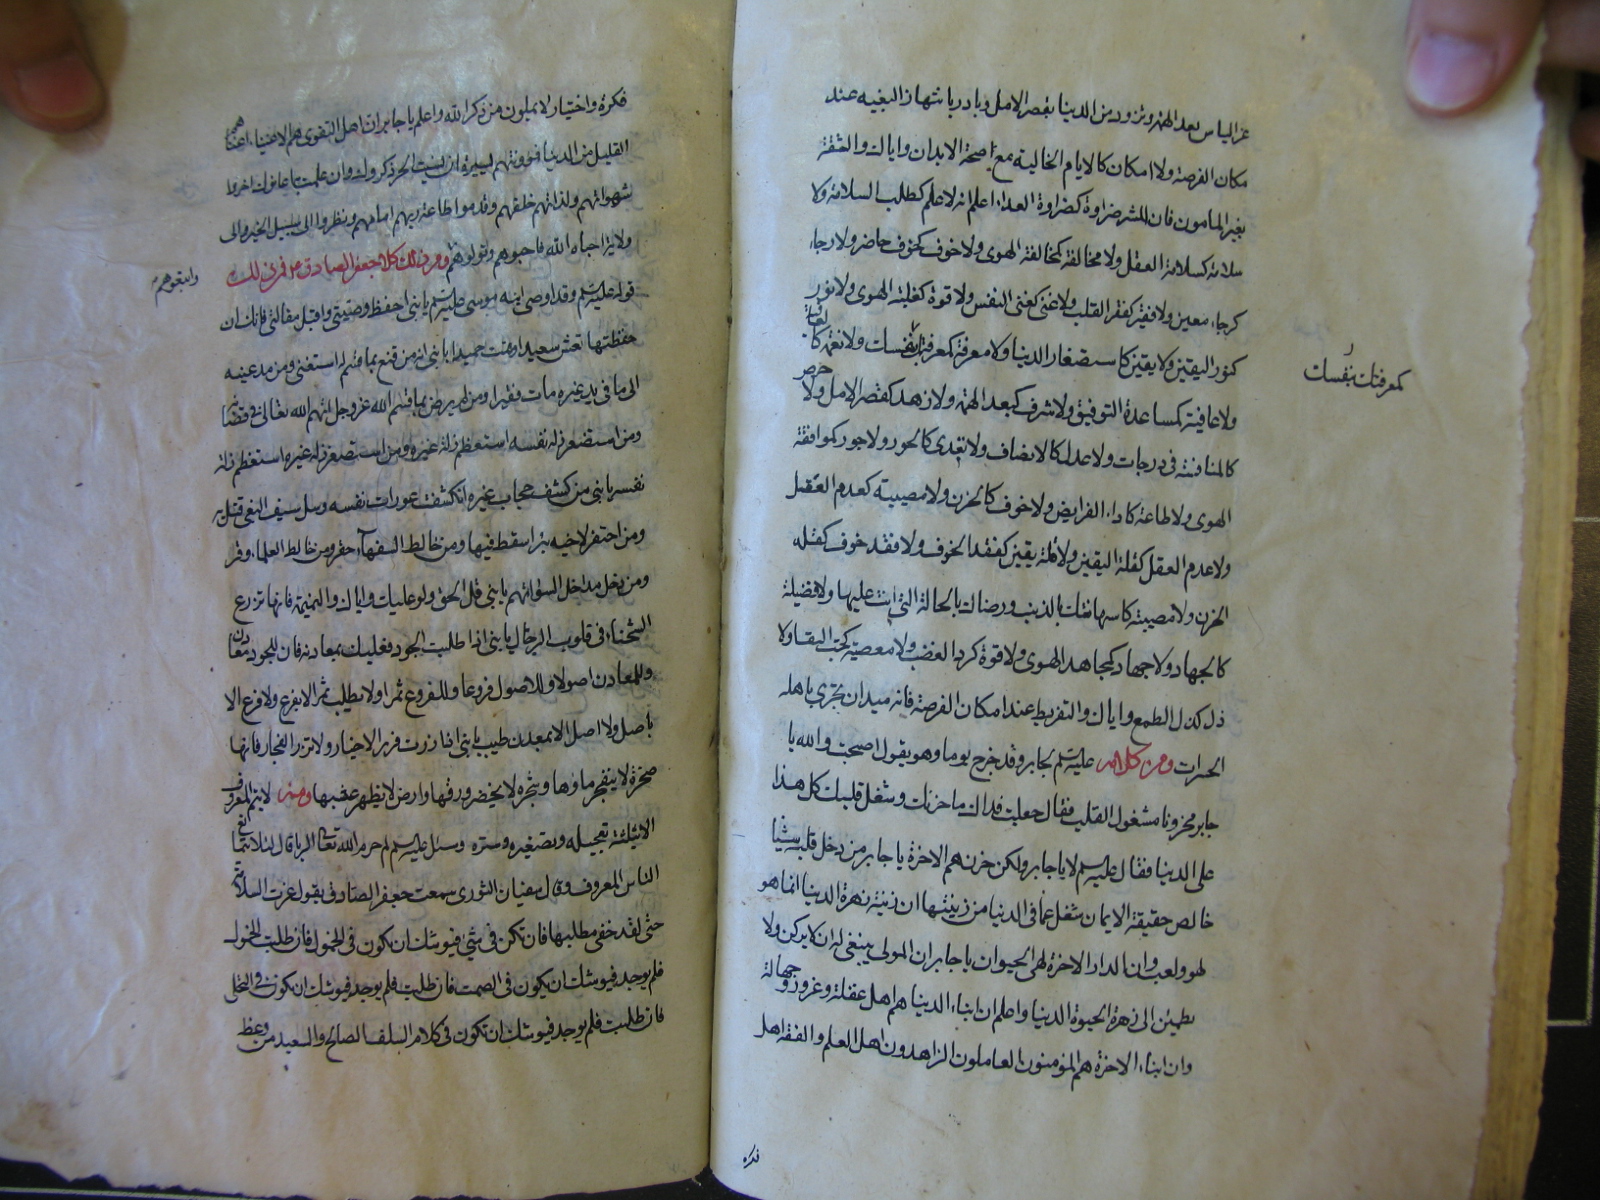 عز الياس ببعد الهمة وتزود من الدنيا بقصر الامل وبادر بانتهاز البغية عند
مكان الفرصة ولا امكان كالايام الخالية مع صحة الابدان واياك والثقة
بغير المامون فان للشر ضراوة كضراوة الغداء اعلم انه لا علم كطلب السلامة ولا
سلامة كسلامة القلب ولا عقل كمخالفة الهوى ولا خوف كخوف حاجز ولا رجاء
كرجاء معين ولا فقر كفقر القلب ولا غنى كغنى النفس ولا قوة كغلبة الهوى ولا نور
كنور اليقين ولا يقين كاستصغار الدنيا ولا معرفة كمعرفتك بنفسك ولا نعمة كا
لعافية
كمعرفتك بنفسك
ولا عافية كمساعدة التوفيق ولا شرف كبعد الهمة ولا زهد كقصر الامل ولا
حرص
كالمنافسة في درجات ولا عدل كالانصاف ولا تعدي كالجور ولا جور كموافقة
الهوى ولا طاعة كاداء الفرايض ولا خوف كالحزن ولا مصيبة كعدم العقل
ولا عدم العقل كقلة اليقين ولا قلة يقين كفقد الخوف ولا فقد خوف كقلة
الحزن ولا مصيبة كاستهانتك بالذنب ورضاك بالحالة التي انت عليها ولا فضيلة
كالجهاد ولا جهاد كمجاهد الهوى ولا قوة كرد الغضب ولا معصية كحب البقا ولا
ذل كذل الطمع واياك والتفريط عند امكان الفرصة فانه ميدان يجري باهله
الخسرات ومن كلامه عليه السلم لجابر وقد خرج يوما وهو يقول اصبحت والله يا
جابر محزونا مشغول القلب فقال جعلت فداك ما حزنك وشغل قلبك كل هذا
على الدنيا فقال عليه السلم لا يا جابر ولكن حزن هم الاخرة يا جابر من دخل قلبه شيئا
خالص حقيقة الايمان شغل عما في الدنيا من زينتها ان زينة زهرة الدنيا انما هو
لهو ولعب وان الدار الاخرة لهي الحيوان يا جابر ان المولى ينبغي له ان لا يركن ولا
يطمئن الى زهرة الحيوة الدنيا واعلم ان ابناء الدنيا هم اهل غفلة وغرور وجهالة
وان ابناء الاخرة هم المؤمنون العاملون الزاهدون اهل العلم والفقه اهل
فكره
فكرة واختيار لا يملون من ذكر الله واعلم يا جابر ان اهل التقوى هم الاغنياء اغناهم
القليل من الدنيا فمؤنتهم يسيرة ان نسيت الخير ذكروك وان عملت به اعانوك اخروا
شهواتهم ولذاتهم خلفهم وقدموا طاعة ربهم امامهم ونظروا الى سبيل الخير والى
ولاية احباء الله فاحبوهم وتولوهم ومن ذلك كلام جعفر الصادق فمن ذلك
واتبعوهم
قوله عليه السلم وقد اوصى ابنه موسى عليه السلم يا بني احفظ وصيتي واقبل مقالتي فانك ان
حفظتها تعش سعيدا وتمت حميدا يا بني انه من قنع بما قسم له استغنى ومن مد عينه
الى ما في يد غيره مات فقيرا ومن لم يرض بما قسم الله عز وجل اتهم الله تعالى في قضائه
ومن استصغر زلة نفسه استعظم زلة غيره ومن استصغر زلة غيره استعظم زلة
نفسه يا بني من كشف حجاب غيره انكشفت عورات نفسه ومن سل سيف البغي قتل به
ومن احتفر لاخيه بئرا سقط فيها ومن خالط السفهاء حقر ومن خالط العلماء وقر
ومن دخل مداخل السوء اتهم يا بني قل الحق ولو عليك واياك والنميمة فانها تزرع
الشحناء في قلوب الرجال يا بني اذا طلبت الجود فعليك بمعادنه فان للجود معادن
وللمعادن اصولا وللاصول فروعا وللفروع ثمرا ولا يطلب ثمر الا بفرع ولا فرع الا
باصل ولا اصل الا بمعدن طيب يا بني اذا زرت فزر الاخيار ولا تزر الفجار فانها
صخرة لا ينفجر ماؤها وشجرة لا يخضر ورقها وارض لا يظهر عشبها ومنه لا يتم المعروف
الا بثلثة تعجيله وتصغيره وستره وسئل عليه السلم لم حرم الله تعالى الربا قال لئلا يتمانع
الناس المعروف وقال سفيان الثوري سمعت جعفر الصادق يقول عزت السلامة
حتى لقد خفي مطلبها فان تكن في شيء فيوشك ان تكون في الخمول فان طلبت الخمول
فلم يوجد فيوشك ان يكون في الصمت فان طلبت فلم يوجد فيوشك ان تكون في التخلي
فان طلبت فلم يوجد فيوشك ان تكون في كلام السلف الصالح والسعيد من وعظ